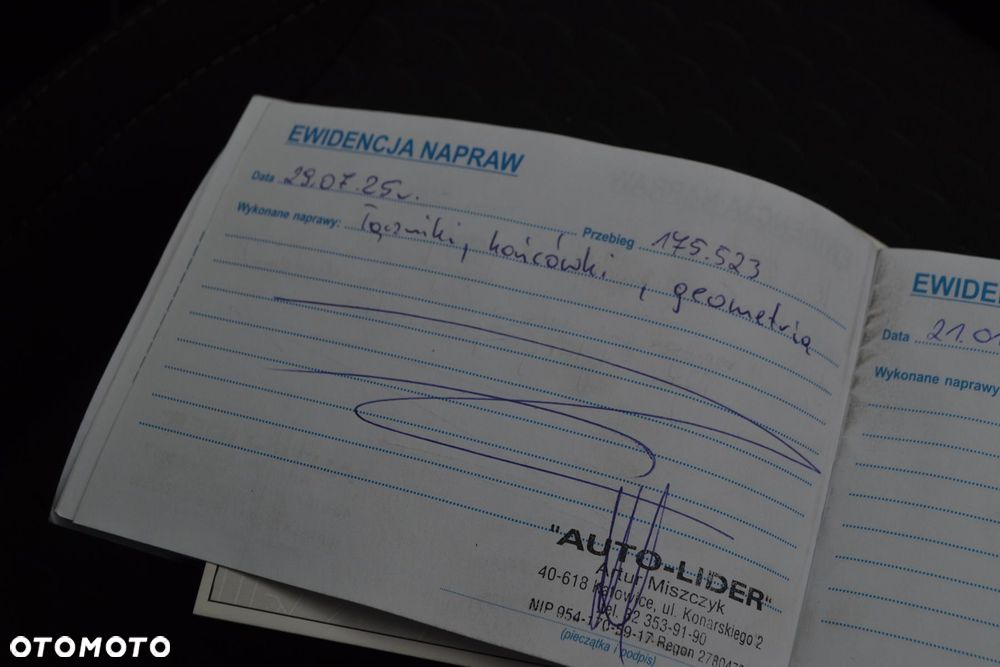 EWIDENCJA NAPRAW
Data 29.07.25r.
Przebieg 175.523
Wykonane naprawy: łączniki, końcówki, geometria
"AUTO-LIDER"
Artur Miszczyk
40-618 Katowice, ul. Konarskiego 2
tel. 32 353-91-90
NIP 954-170-59-17 Regon 278047
(pieczątka i podpis)
EWIDE
Data 21.01
Wykonane naprawy
OTOMOTO